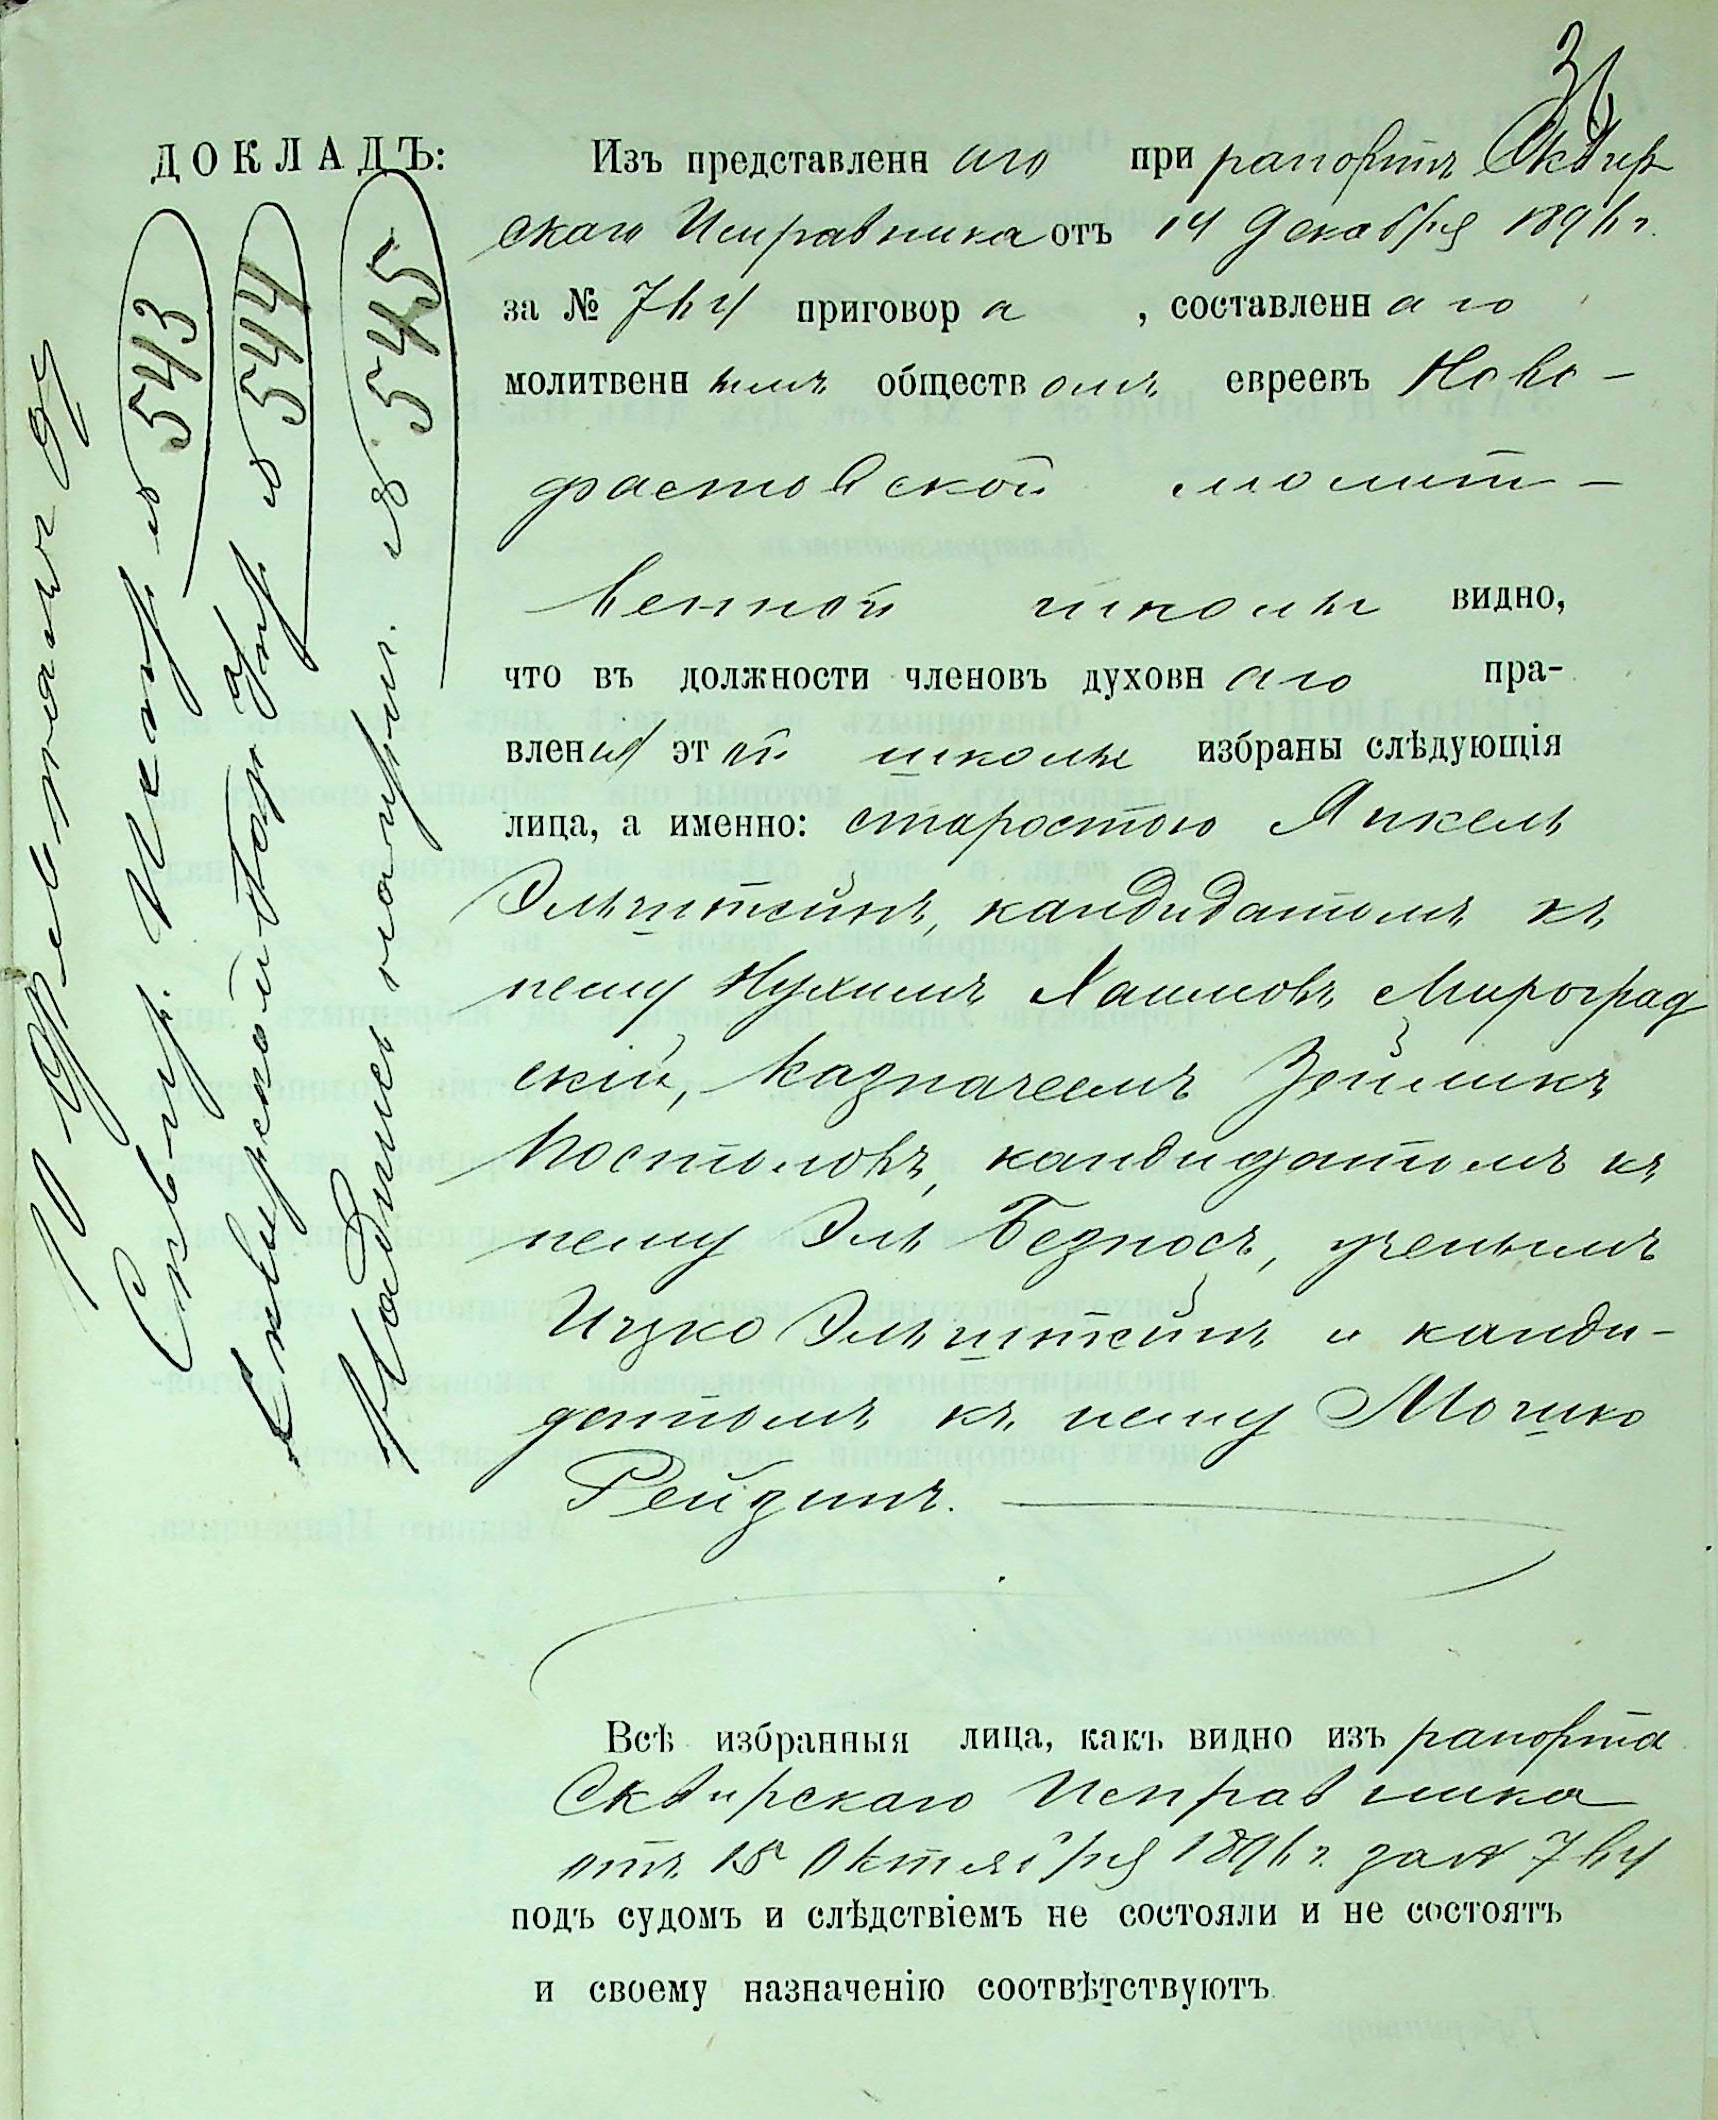 31
ДОКЛАДЪ:
Изъ представленнаго при рапортѣ Сквир
скаго Исправника отъ 14 Декабря 1896 г.
за № 764 приговора, составленнаго
молитвеннымъ обществомъ евреевъ Ново-
фастовской молит-
венной школы видно,
что въ должности членовъ духовнаго пра-
вленія этой школы избраны слѣдующія
лица, а именно: старостою Янкель
Эльштейнъ, кандидатомъ къ
нему Нухимъ Хаимовъ Мироград
скій, казначеемъ Зейликъ
Постоловъ, кандидатомъ къ
нему Эль Безносъ, ученымъ
Ицко Эльштейнъ и канди-
датомъ къ нему Мошко
Рейзинъ.
Всѣ избранныя лица, какъ видно изъ рапорта
Сквирскаго Исправника
отъ 15 Октября 1896 г. за № 764
подъ судомъ и слѣдствіемъ не состояли и не состоятъ
и своему назначенію соотвѣтствуютъ
10 97
Сквир. Испр № 543
Сквирской № 544
№ 545